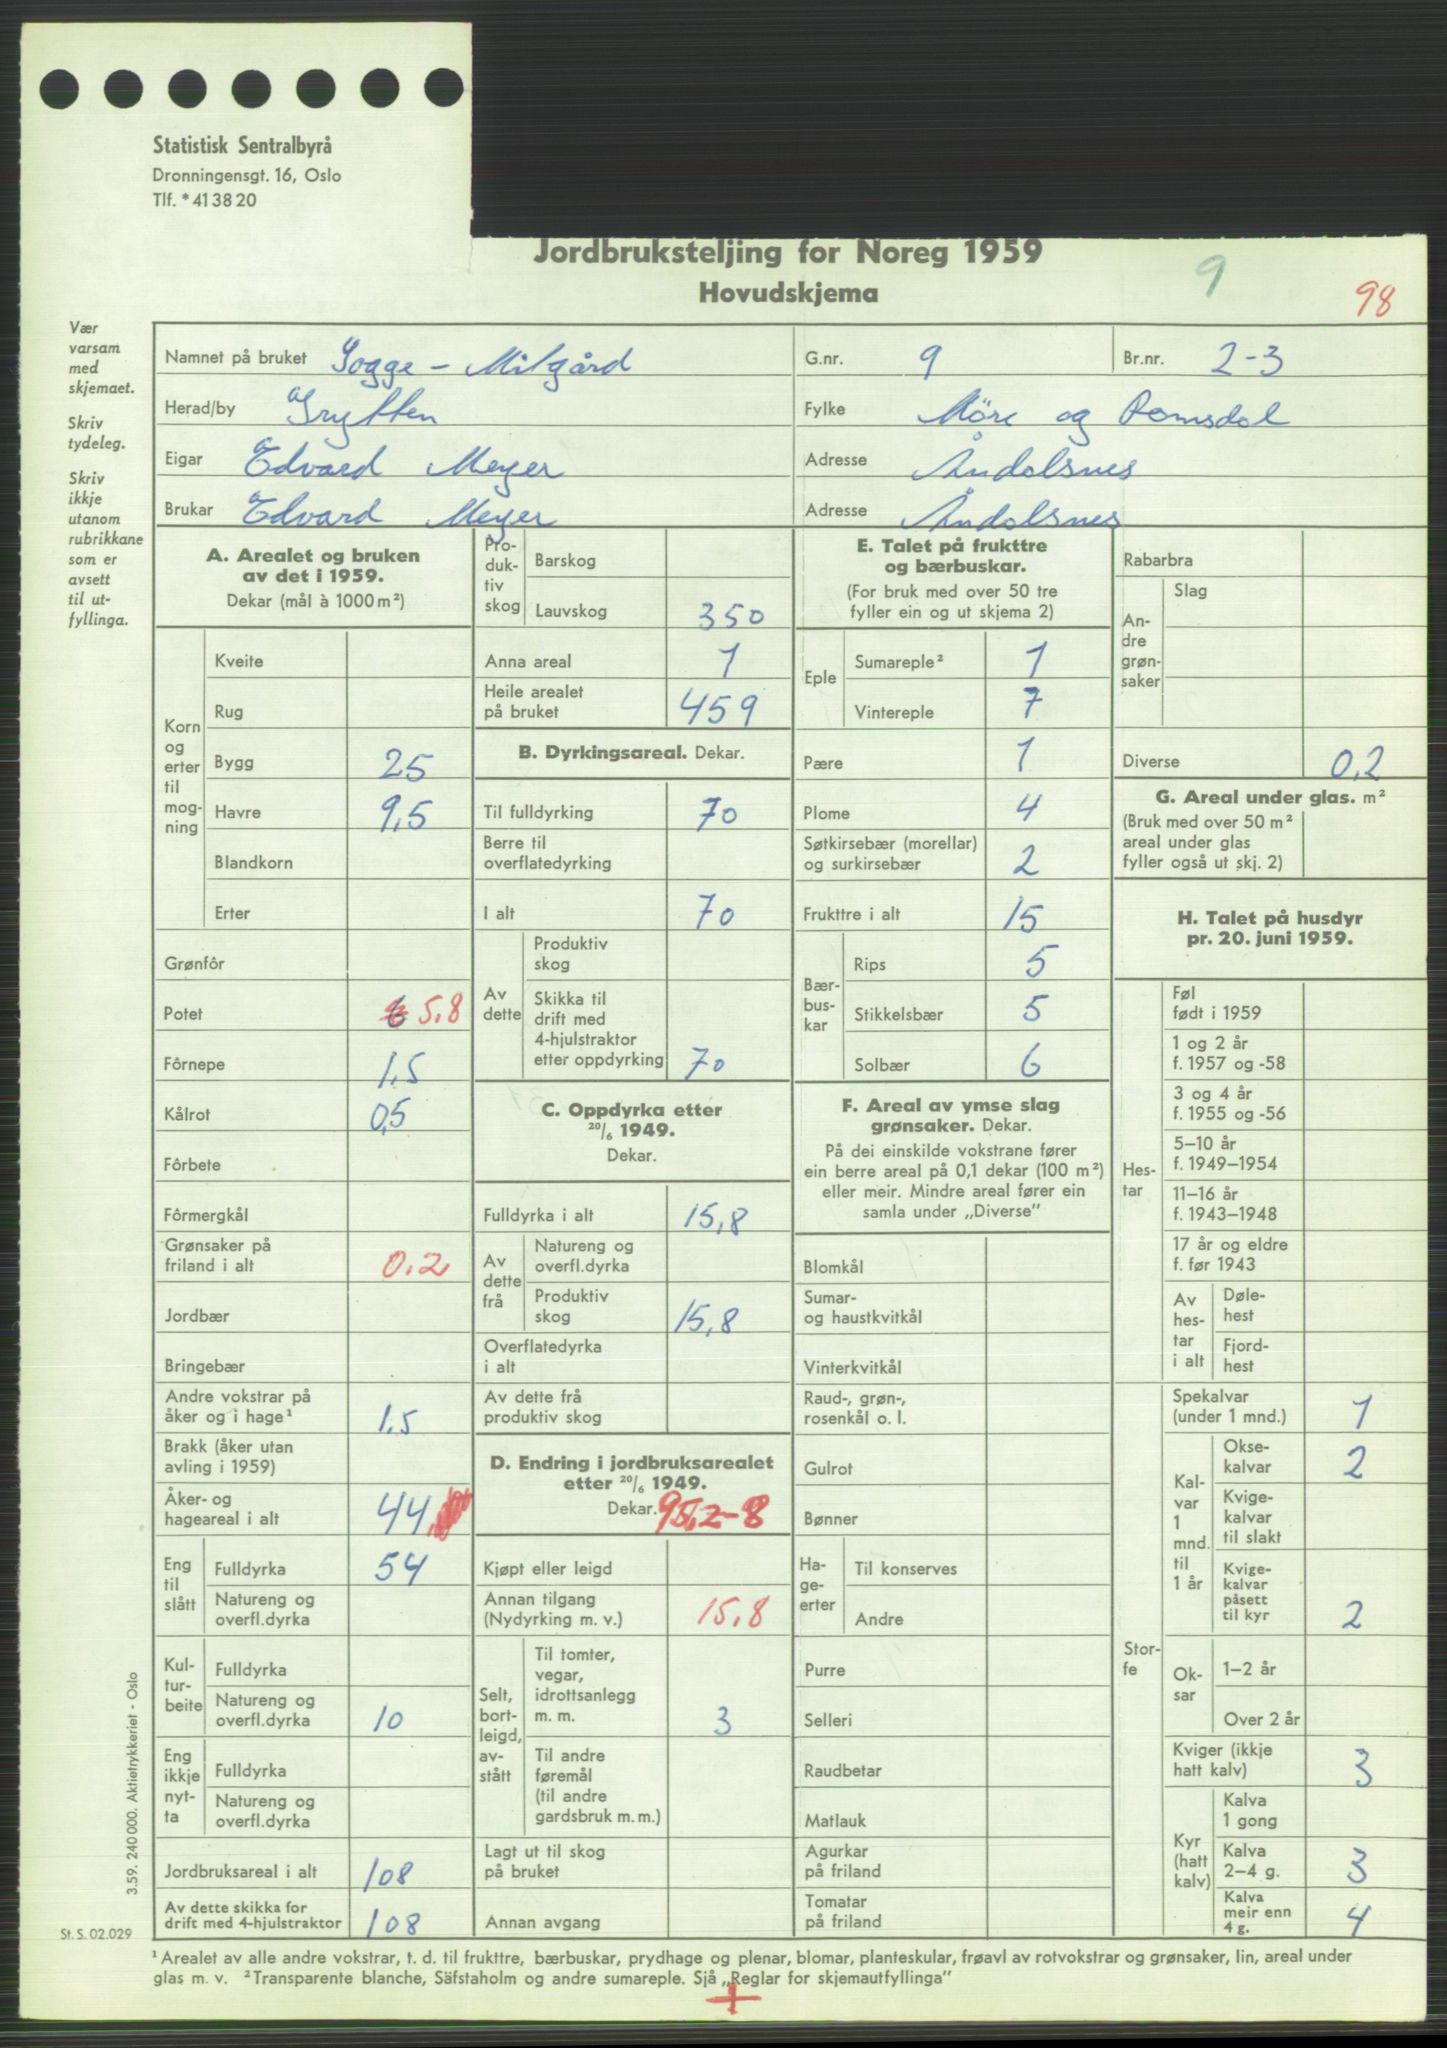 Statistisk Sentralbyrå
Dronningensgt. 16, Oslo
Tlf. * 41 38 20
Jordbruksteljing for Noreg 1959
Hovudskjema
9
98
Vær
varsam
med
skjemaet.
Skriv
tydeleg.
Skriv
ikkje
utanom
rubrikkane
som er
avsett
til ut-
fyllinga.
Namnet på bruket Sogge - Mitgård G.nr. 9 Br.nr. 2-3
Herad/by Grytten Fylke Möre og Romsdal
Eigar Edvard Meyer Adresse Åndalsnes
Brukar Edvard Meyer Adresse Åndalsnes
A. Arealet og bruken
av det i 1959.
Dekar (mål à 1000 m²)
Korn
og
erter
til
mog-
ning
Kveite
Rug
Bygg 25
Havre 9,5
Blandkorn
Erter
Grønfôr
Potet 6 5,8
Fôrnepe 1,5
Kålrot 0,5
Fôrbete
Fôrmergkål
Grønsaker på
friland i alt 0.2
Jordbær
Bringebær
Andre vokstrar på
åker og i hage¹ 1,5
Brakk (åker utan
avling i 1959)
Åker- og
hageareal i alt 44
Eng
til
slått
Fulldyrka 54
Natureng og
overfl.dyrka
Kul-
tur-
beite
Fulldyrka
Natureng og
overfl.dyrka 10
Eng
ikkje
nyt-
ta
Fulldyrka
Natureng og
overfl.dyrka
Jordbruksareal i alt 108
Av dette skikka for
drift med 4-hjulstraktor 108
Pro-
duk-
tiv
skog
Barskog
Lauvskog 350
Anna areal 1
Heile arealet
på bruket 459
B. Dyrkingsareal. Dekar.
Til fulldyrking 70
Berre til
overflatedyrking
I alt 70
Av
dette
Produktiv
skog
Skikka til
drift med
4-hjulstraktor
etter oppdyrking 70
C. Oppdyrka etter
20/6 1949.
Dekar.
Fulldyrka i alt 15,8
Av
dette
frå
Natureng og
overfl.dyrka
Produktiv
skog 15,8
Overflatedyrka
i alt
Av dette frå
produktiv skog
D. Endring i jordbruksarealet
etter 20/6 1949.
Dekar. 95,2-8
Kjøpt eller leigd
Annan tilgang
(Nydyrking m. v.) 15,8
Selt,
bort-
leigd,
av-
stått
Til tomter,
vegar,
idrottsanlegg
m. m. 3
Til andre
føremål
(til andre
gardsbruk m. m.)
Lagt ut til skog
på bruket
Annan avgang
E. Talet på frukttre
og bærbuskar.
(For bruk med over 50 tre
fyller ein og ut skjema 2)
Eple
Sumareple² 1
Vintereple 7
Pære 1
Plome 4
Søtkirsebær (morellar)
og surkirsebær 2
Frukttre i alt 15
Bær-
bus-
kar
Rips 5
Stikkelsbær 5
Solbær 6
F. Areal av ymse slag
grønsaker. Dekar.
På dei einskilde vokstrane fører
ein berre areal på 0,1 dekar (100 m²)
eller meir. Mindre areal fører ein
samla under „Diverse”
Blomkål
Sumar-
og haustkvitkål
Vinterkvitkål
Raud-, grøn-,
rosenkål o. l.
Gulrot
Bønner
Ha-
ge-
erter
Til konserves
Andre
Purre
Selleri
Raudbetar
Matlauk
Agurkar
på friland
Tomatar
på friland
Rabarbra
An-
dre
grøn-
saker
Slag
Diverse 0,2
G. Areal under glas. m²
(Bruk med over 50 m²
areal under glas
fyller også ut skj. 2)
H. Talet på husdyr
pr. 20. juni 1959.
Hes-
tar
Føl
født i 1959
1 og 2 år
f. 1957 og -58
3 og 4 år
f. 1955 og -56
5–10 år
f. 1949–1954
11–16 år
f. 1943–1948
17 år og eldre
f. før 1943
Av
hes-
tar
i alt
Døle-
hest
Fjord-
hest
Stor-
fe
Spekalvar
(under 1 mnd.) 1
Kal-
var
1
mnd.
til
1 år
Okse-
kalvar 2
Kvige-
kalvar
til slakt
Kvige-
kalvar
påsett
til kyr 2
Ok-
sar
1–2 år
Over 2 år
Kviger (ikkje
hatt kalv) 3
Kyr
(hatt
kalv)
Kalva
1 gong
Kalva
2–4 g. 3
Kalva
meir enn
4 g. 4
3.59. 240 000. Aktietrykkeriet - Oslo
St. S. 02.029
¹ Arealet av alle andre vokstrar, t. d. til frukttre, bærbuskar, prydhage og plenar, blomar, planteskular, frøavl av rotvokstrar og grønsaker, lin, areal under
glas m. v. ² Transparente blanche, Säfstaholm og andre sumareple. Sjå „Reglar for skjemautfyllinga”